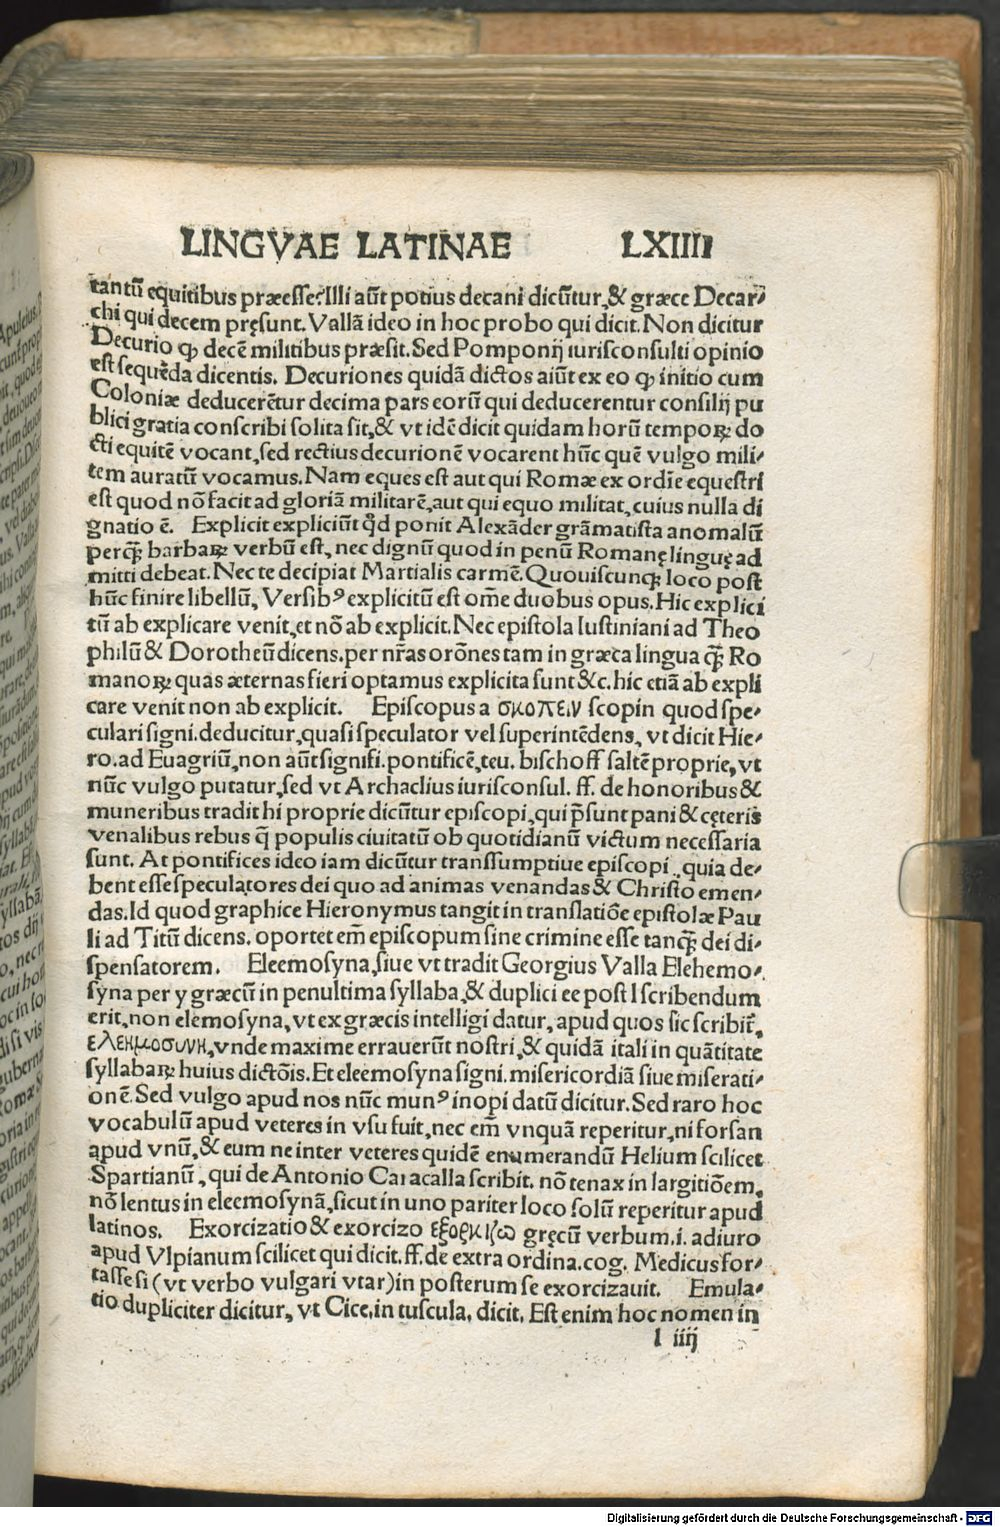 LINGVAE LATINAE LXIIII
tantū equitibus præesse? Illi aūt potius decani dicūtur, & græce Decar/
chi qui decem pręsunt. Vallā ideo in hoc probo qui dicit. Non dicitur
Decurio ꝙ decē militibus præsit. Sed Pomponij iurisconsulti opinio
est sequēda dicentis. Decuriones quidā dictos aiūt ex eo ꝙ initio cum
Coloniæ deducerētur decima pars eorū qui deducerentur consilij pu
blici gratia conscribi solita sit, & vt idē dicit quidam horū temporꝝ do
cti equitē vocant, sed rectius decurionē vocarent hūc quē vulgo mili/
tem auratū vocamus. Nam eques est aut qui Romæ ex ordīe equestri
est quod nō facit ad gloriā militarē, aut qui equo militat, cuius nulla di
gnatio ē. Explicit expliciūt qd̄ ponit Alexāder grāmatista anomalū
perq̄ꝫ barbarꝝ verbū est, nec dignū quod in penū Romanę linguę ad
mitti debeat. Nec te decipiat Martialis carmē. Quouiscunqꝫ loco post
hūc finire libellū, Versibꝰ explicitū est om̄e duobus opus. Hic explici
tū ab explicare venit, et nō ab explicit. Nec epistola Iustiniani ad Theo
philū & Dorotheū dicens. per nr̄as orōnes tam in græca lingua q̄ꝫ Ro
manorꝝ quas æternas fieri optamus explicita sunt &c. hic etiā ab expli
care venit non ab explicit. Episcopus a σκοπειν scopin quod spe/
culari signi. deducitur, quasi speculator vel superintēdens, vt dicit Hie/
ro. ad Euagriū, non aūt signifi. pontificē, teu. bischoff saltē proprie, vt
nūc vulgo putatur, sed vt Archaclius iurisconsul. ff. de honoribus &
muneribus tradit hi proprie dicūtur episcopi, qui p̄sunt pani & cęteris
venalibus rebus q̄ populis ciuitatū ob quotidianū victum necessaria
sunt. At pontifices ideo iam dicūtur transsumptiue episcopi, quia de/
bent esse speculatores dei quo ad animas venandas & Christo emen/
das. Id quod graphice Hieronymus tangit in translatiōe epistolæ Pau
li ad Titū dicens. oportet em̄ episcopum sine crimine esse tanq̄ꝫ dei di/
spensatorem. Eleemosyna, siue vt tradit Georgius Valla Elehemo/
syna per y græcū in penultima syllaba, & duplici ee post l scribendum
erit, non elemosyna, vt ex græcis intelligi datur, apud quos sic scribit̄,
ελεημοσυνη, vnde maxime errauerūt nostri, & quidā itali in quātitate
syllabarꝝ huius dictōis. Et eleemosyna signi. misericordiā siue miserati/
onē. Sed vulgo apud nos nūc munꝰ inopi datū dicitur. Sed raro hoc
vocabulū apud veteres in vsu fuit, nec em̄ vnquā reperitur, ni forsan
apud vnū, & eum ne inter veteres quidē enumerandū Helium scilicet
Spartianū, qui de Antonio Caracalla scribit. nō tenax in largitiōem,
nō lentus in eleemosynā, sicut in uno pariter loco solū reperitur apud
latinos. Exorcizatio & exorcizo εξορκιζω gręcū verbum .i. adiuro
apud Vlpianum scilicet qui dicit. ff. de extra ordina. cog. Medicus for/
tasse si (vt verbo vulgari vtar) in posterum se exorcizauit. Emula/
tio dupliciter dicitur, vt Cice. in tuscula. dicit. Est enim hoc nomen in
l iiij
Digitalisierung gefördert durch die Deutsche Forschungsgemeinschaft - DFG